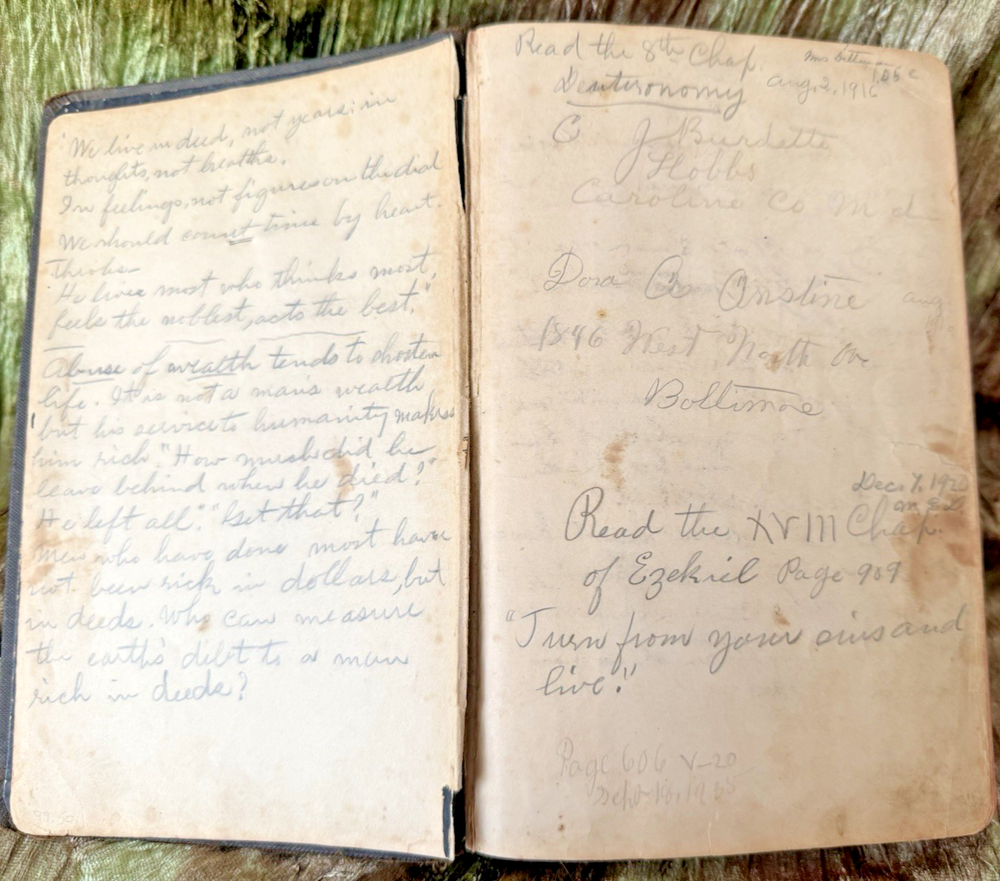 "We live in deed, not years; in
thoughts, not breaths.
In feelings, not figures on the dial
We should count time by heart-
throbs—
He lives most who thinks most,
feels the noblest, acts the best."
Abuse of wealth tends to shorten
life. It is not a mans wealth
but his service to humanity makes
him rich. "How much did he
leave behind when he died?"
He left all." "Get that?"
Men who have done most have
not been rich in dollars, but
in deeds. Who can measure
the earth's debt to a man
rich in deeds?
Read the 8th Chap.
Deuteronomy
Mrs
Aug. 2, 1916
C J Burdette
Hobbs
Caroline Co Md
Dora A Anstine Aug
1846 West North Av
Boltimore
Dec. 7, 1920
Read the XVIII Chap.
of Ezekiel Page 909
"Turn from your sins and
live."
Page 606 V-20
Sept 18,